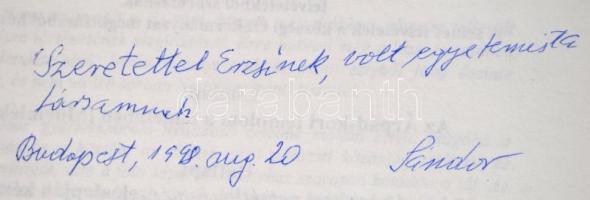 Szeretettel Erzsinek, volt egyetemista
társamnak
Budapest, 1998. aug. 20 Sándor
darabanth